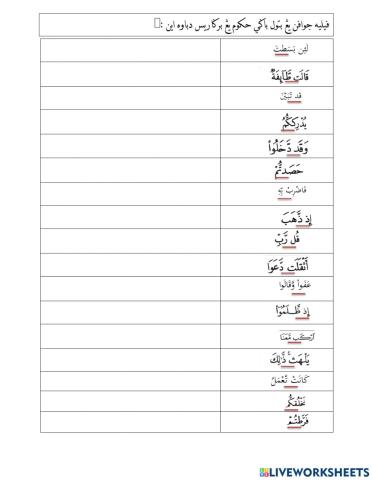 فيليه جوابن يڠ بتول باݢي حكوم يڠ برݢاريس دباوه اين :
لَئِن بَسَطتَ
قَالَت طَّآئِفَةٌ
قَد تَّبَيَّنَ
يُدْرِككُّمُ
وَقَد دَّخَلُوا۟
حَصَدتُّمْ
فَاضْرِبْ بِّهِ
إِذ ذَّهَبَ
قُل رَّبِّ
أَثْقَلَت دَّعَوَا
عَفَوا۟ وَّقَالُوا
إِذ ظَّلَمُوٓا۟
ٱرْكَب مَّعَنَا
يَلْهَث ۚ ذَّٰلِكَ
كَانَتْ تَّعْمَلُ
نَخْلُقكُّم
فَرَّطتُمْ
LIVEWORKSHEETS